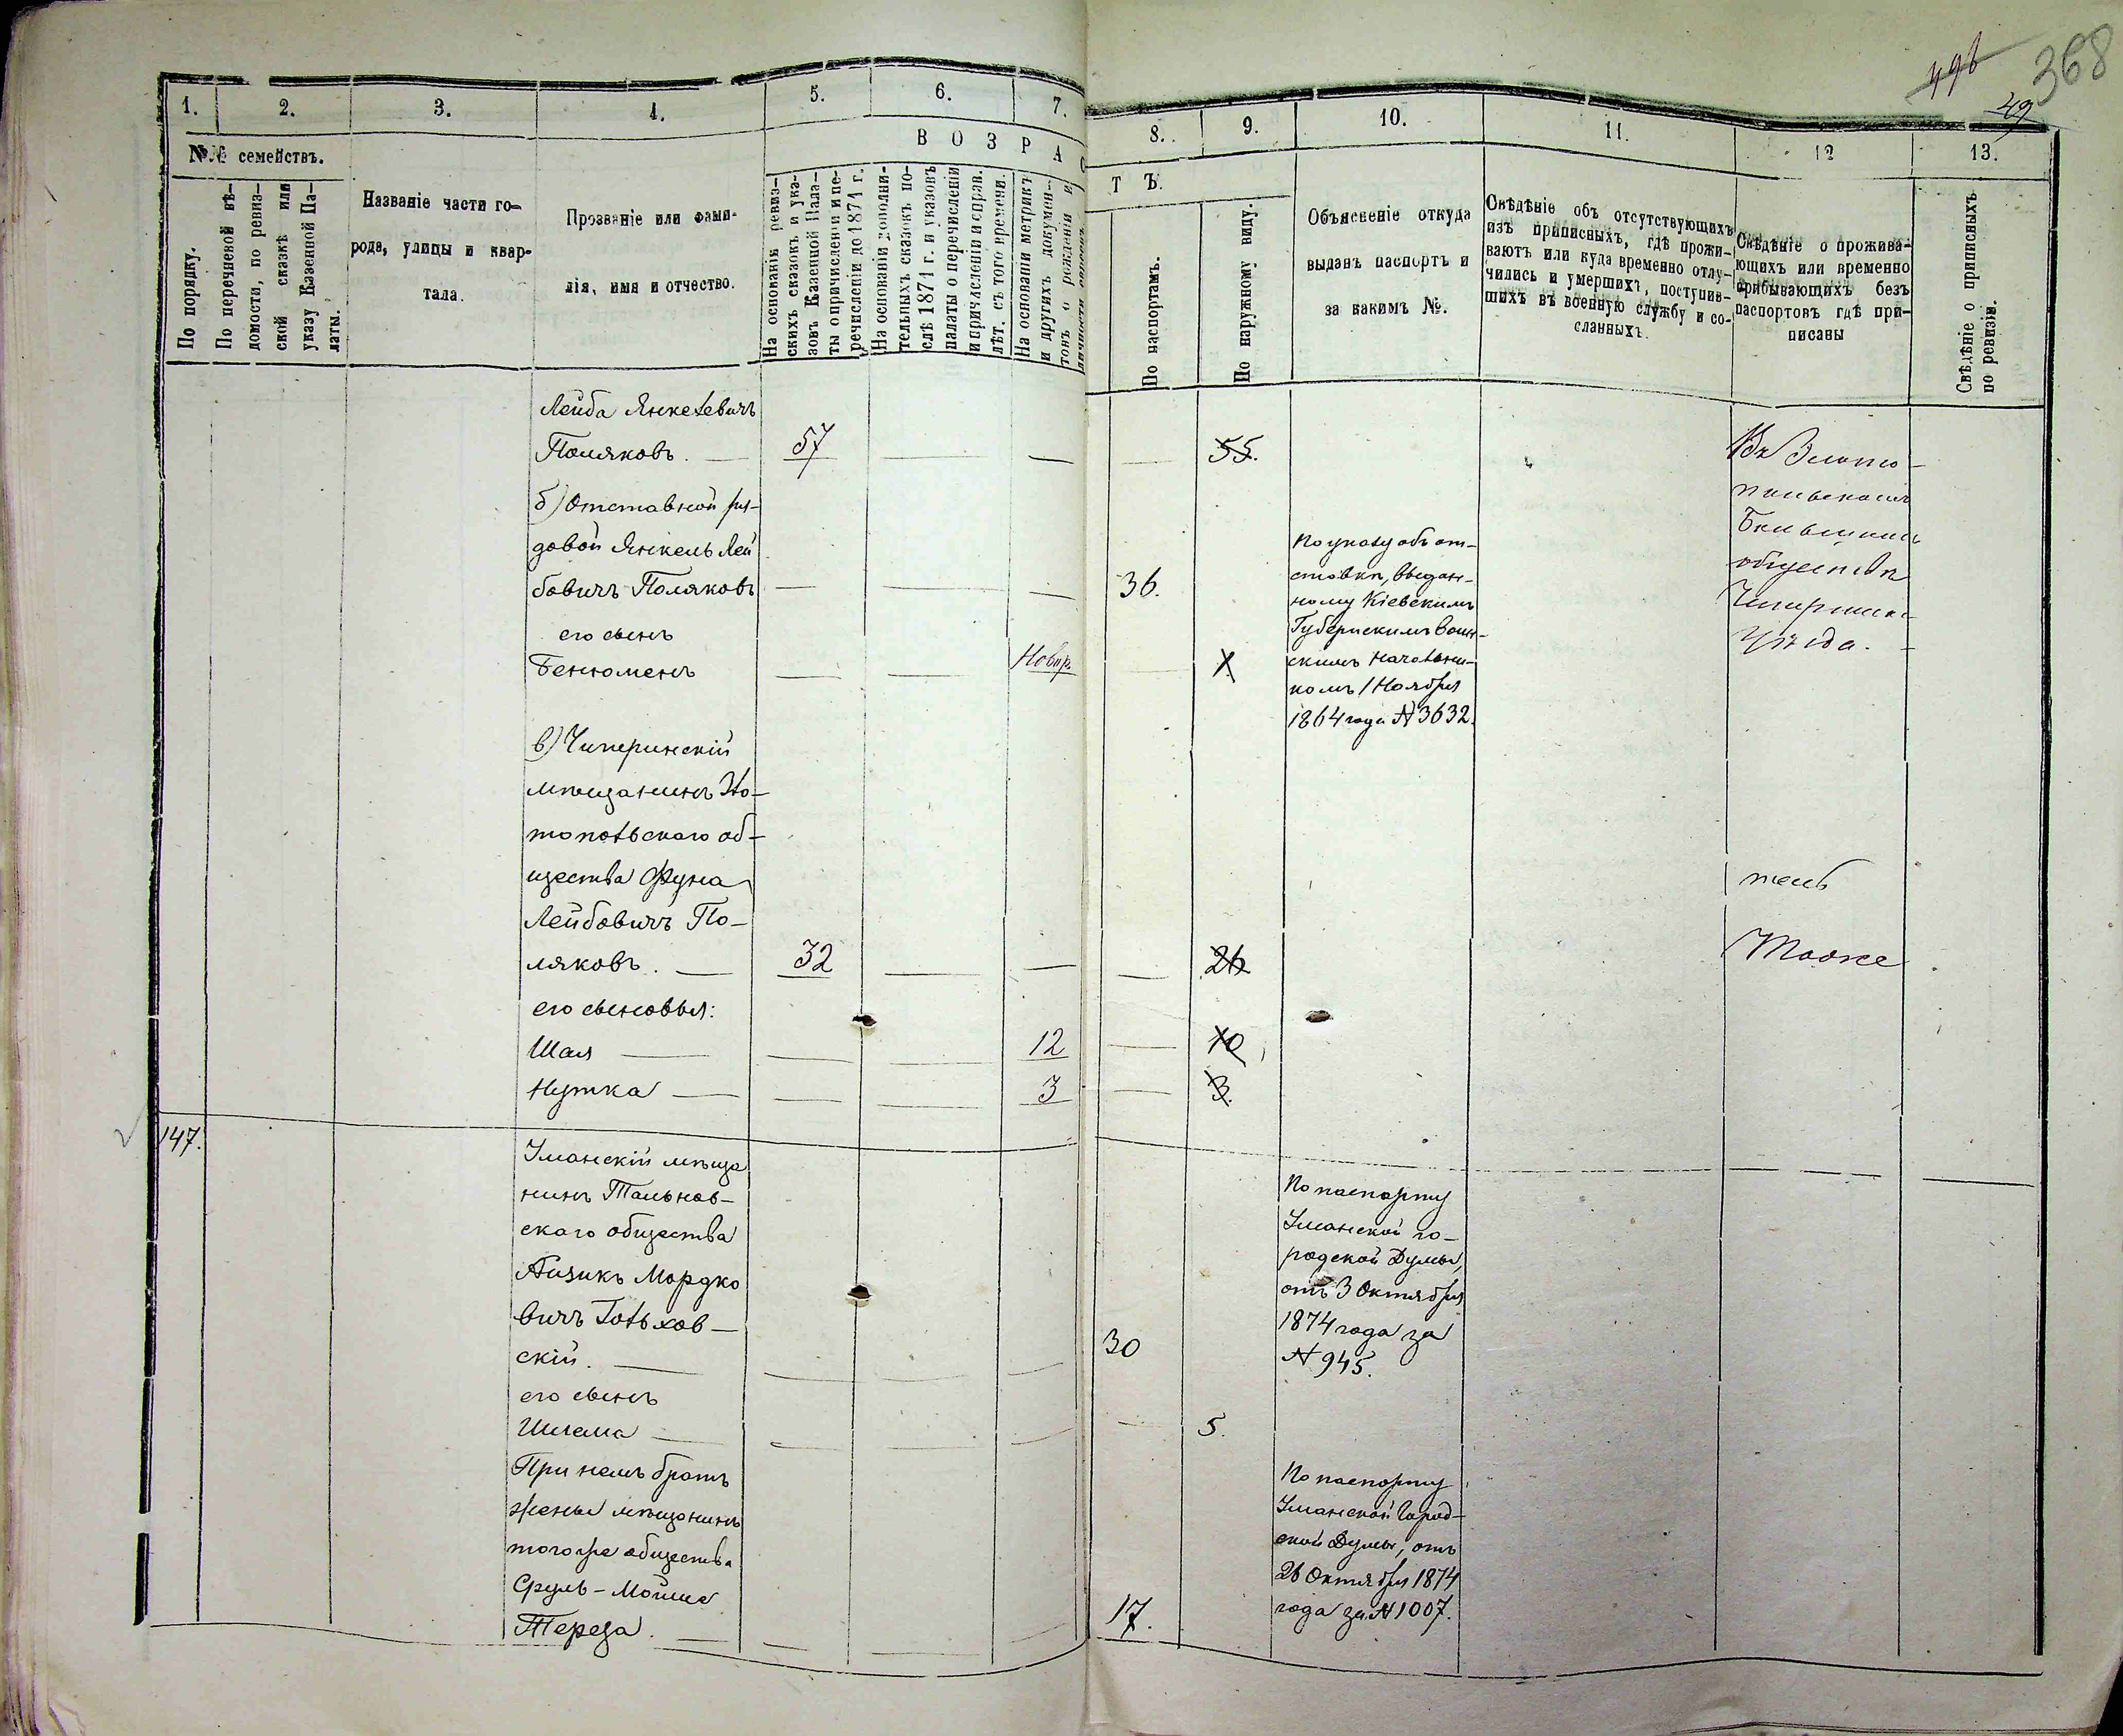 368
49
1.
2.
3.
4.
5.
6.
7.
8.
9.
10.
11.
12
13.
№№ семействъ.
По порядку.
По перечневой вѣ-
домости, по ревиз-
ской сказкѣ или
указу Казенной Па-
латы.
Названіе части го-
рода, улицы и квар-
тала.
Прозваніе или фами-
лія, имя и отчество.
ВОЗРАС
ТЪ.
На основаніи ревиз-
скихъ сказокъ и ука-
зовъ Казенной Пала-
ты о причисленіи и пе-
речисленіи до 1871 г.
На основаніи дополни-
тельныхъ сказокъ по-
слѣ 1871 г. и указовъ
палаты о перечисленіи
и причисленіи и справ.
лѣт. съ того времени.
На основаніи метрикъ
и другихъ докумен-
товъ о рожденіи и
По паспортамъ.
По наружному виду.
Объясненіе откуда
выданъ паспортъ и
за какимъ №.
Свѣдѣніе объ отсутствующихъ
изъ приписныхъ, гдѣ прожи-
ваютъ или куда временно отлу-
чились и умершихъ, поступив-
шихъ въ военную службу и со-
сланныхъ.
Свѣдѣніе о прожива-
ющихъ или временно
прибывающихъ безъ
паспортовъ гдѣ при-
писаны
Свѣдѣніе о приписныхъ
по ревизіи.
Лейба Янкелевичъ
Поляковъ. 57 55.
б) Отставной ря-
довой Янкель Лей
бовичъ Поляковъ 36.
его сынъ
Бенюменъ Новор. 1
По указу объ от-
ставкѣ, выдан-
ному Кіевскимъ
Губернскимъ Воин-
скимъ Начальни-
комъ 1 Ноября
1864 года № 3632.
Въ Злато-
польскомъ
обществѣ
Чигиринск.
Уѣзда.
в) Чигиринскій
мѣщанинъ Зла-
топольскаго об-
щества
Лейбовичъ По-
ляковъ. 32 26
Тоже
его сыновья:
Шая 12 10
Нутка 3 3.
147.
Уманскій мѣща
нинъ Тальнов-
скаго общества
Айзикъ Мордко
вичъ Гольхов-
скій. 30
его сынъ
Шлема 5.
По паспорту
Уманской го-
родской Думы,
отъ 3 Октября
1874 года за
№ 945.
При немъ братъ
жены мѣщанинъ
того же общества
Сруль-Мойше
Тереза. 17.
По паспорту
Уманской Город-
ской Думы, отъ
26 Октября 1874
года за № 1007.